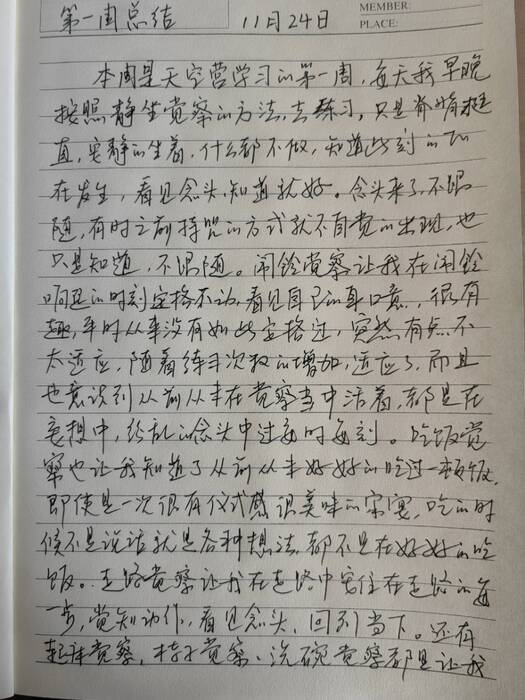 第一周总结
11月24日
MEMBER:
PLACE:
本周是天空营学习的第一周，每天我早晚
按照静坐觉察的方法，去练习，只是脊背挺
直，安静的坐着，什么都不做，知道此刻的正
在发生，看见念头，知道就好。念头来了，不跟
随，有时之前持咒的方式就不自觉的出现，也
只是知道，不跟随。闹铃觉察让我在闹铃
响起的时刻定格不动，看见自己的身口意，很有
趣，平时从来没有如此定格过，突然有点不
太适应，随着练习次数的增加，适应了，而且
也意识到从前从未在觉察当中活着，都是在
妄想中，纷乱的念头中过每时每刻。吃饭觉
察也让我知道了从前从未好好的吃过一顿饭，
即使是一次很有仪式感很美味的家宴，吃的时
候不是说话就是各种想法，都不是在好好的吃
饭。走路觉察让我在走路中安住在走路的每
一步，觉知动作，看见念头，回到当下。还有
起床觉察，梳子觉察、洗碗觉察都是让我